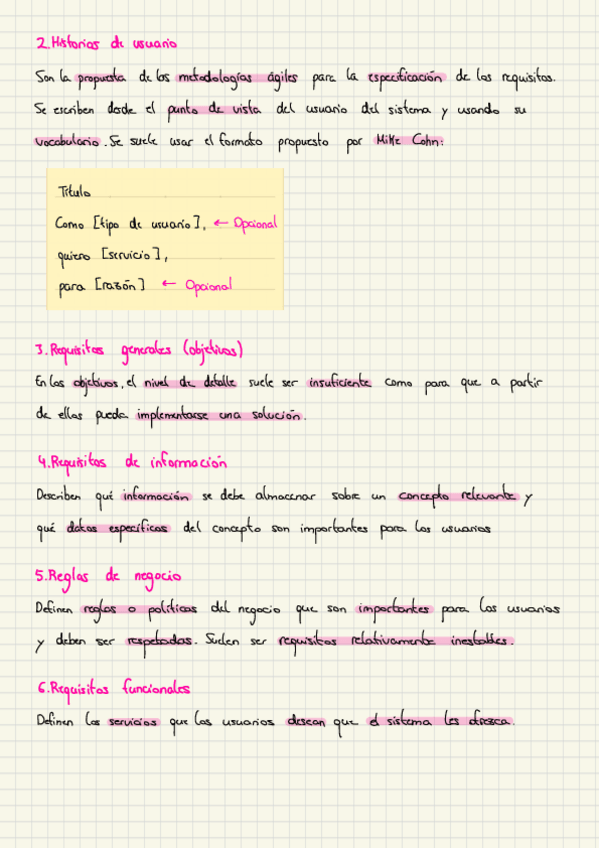 2.Historias de usuario
Son la propuesta de las metodologías ágiles para la especificación de los requisitos.
Se escriben desde el punto de vista del usuario del sistema y usando su
vocabulario. Se suele usar el formato propuesto por Mike Cohn:
Título
Como [tipo de usuario], ← Opcional
quiero [servicio],
para [razón] ← Opcional
3.Requisitos generales (objetivos)
En los objetivos, el nivel de detalle suele ser insuficiente como para que a partir
de ellos pueda implementarse una solución.
4.Requisitos de información
Describen qué información se debe almacenar sobre un concepto relevante y
qué datos específicos del concepto son importantes para los usuarios
5.Reglas de negocio
Definen reglas o políticas del negocio que son importantes para los usuarios
y deben ser respetadas. Suelen ser requisitos relativamente inestables.
6.Requisitos funcionales
Definen los servicios que los usuarios desean que el sistema les ofrezca.